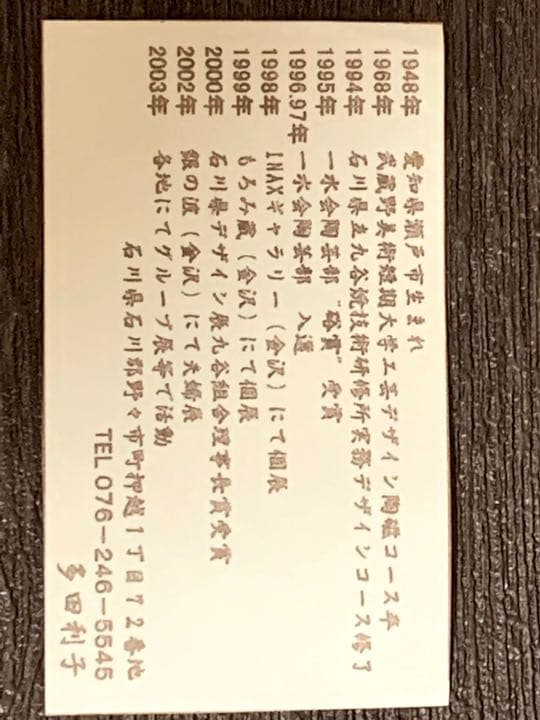 1948年 愛知県瀬戸市生まれ
1968年 武蔵野美術短期大学工芸デザイン陶磁コース卒
1994年 石川県立九谷焼技術研修所実務デザインコース修了
1995年 一水会陶芸部 "裕賞" 受賞
1996.97年 一水会陶芸部 入選
1998年 INAXギャラリー(金沢)にて個展
1999年 もろみ蔵(金沢)にて個展
2000年 石川県デザイン展九谷組合理事長賞受賞
2002年 銀の波(金沢)にて夫婦展
2003年 各地にてグループ展等で活動
石川県石川郡野々市町押越1丁目72番地
TEL 076-246-5545
多田利子